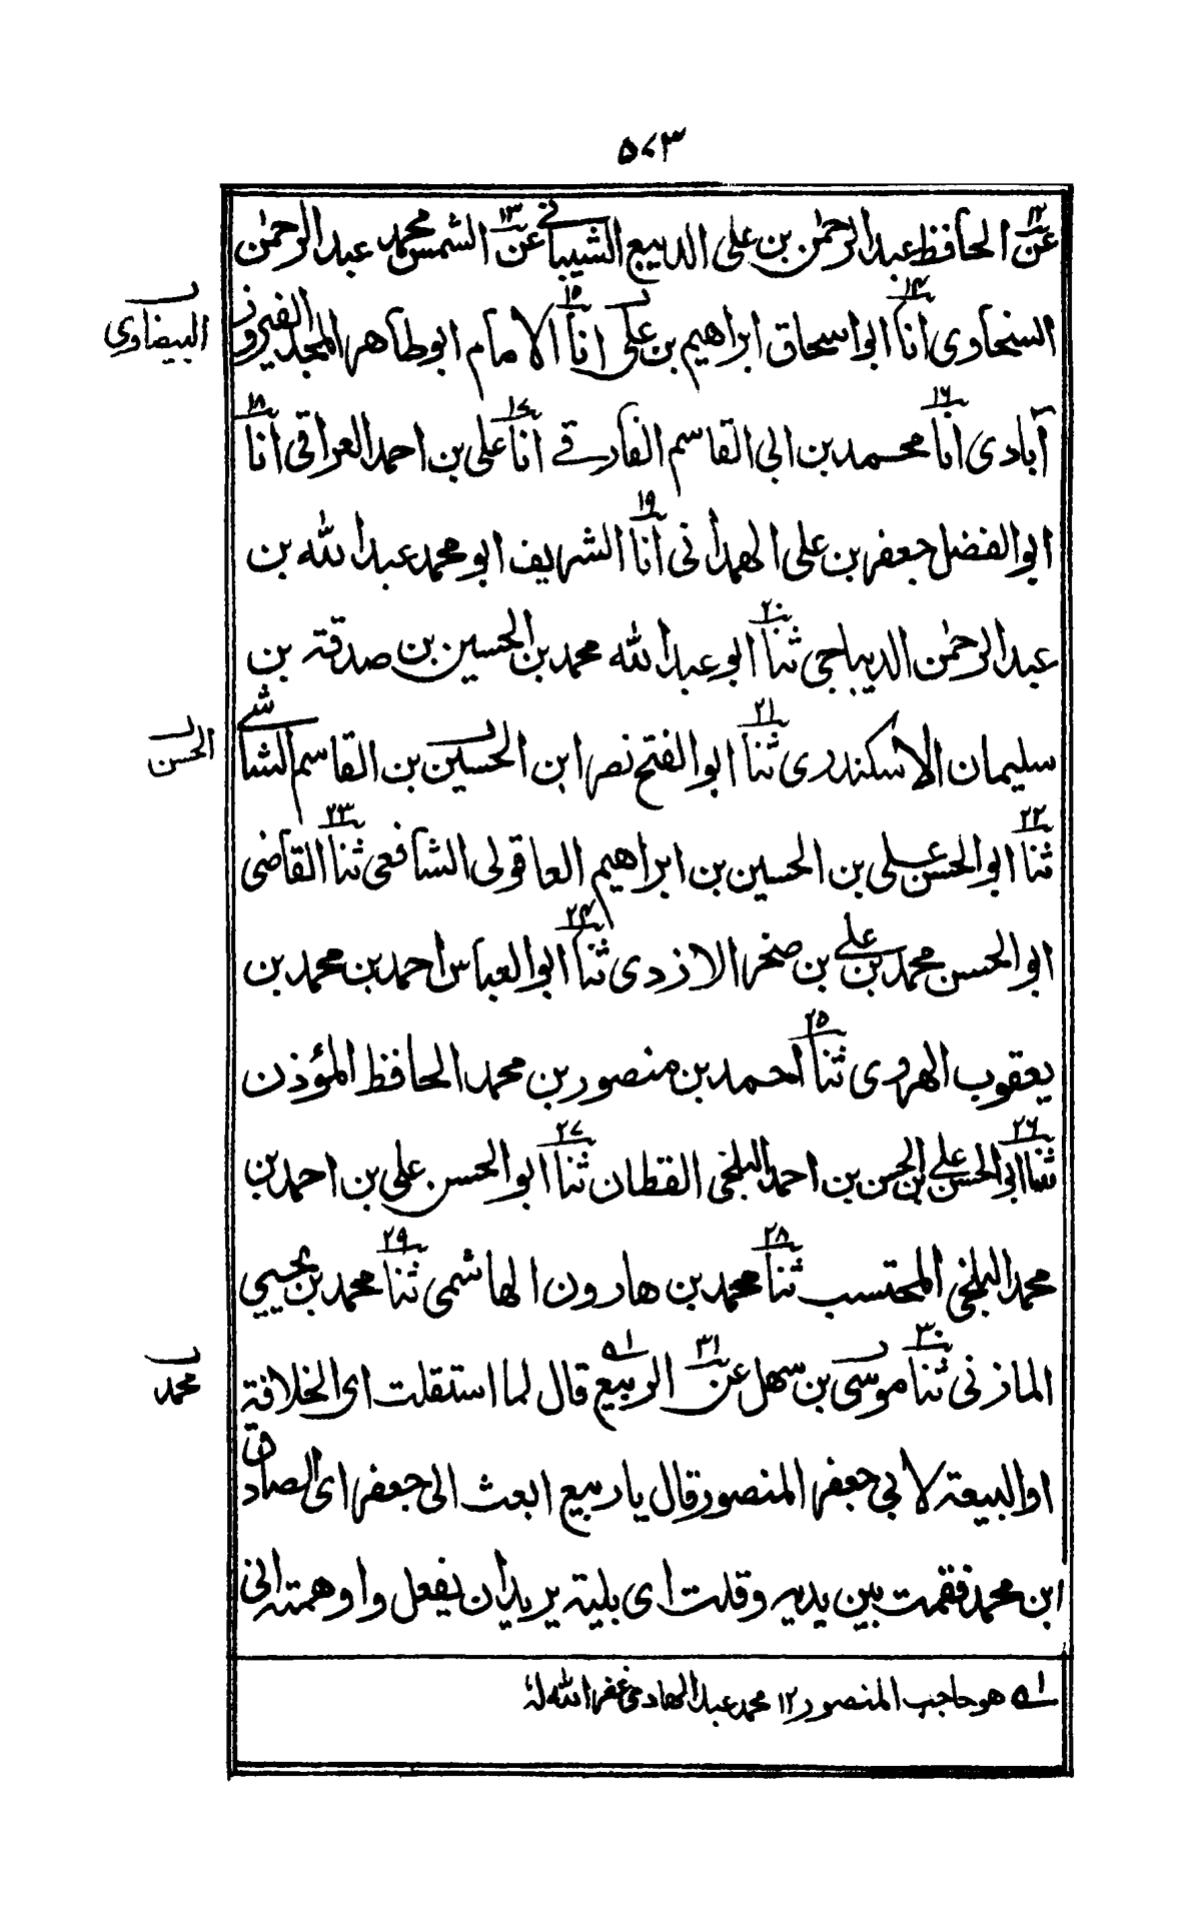 ٥٧٣
عن١٢ الحافظ عبدالرحمٰن بن علی الدیبع الشیبانے عن١٣ الشمس محمد عبدالرحمٰن
السخاوی انا١٤ ابواسحاق ابراھیم بن علی انا١٥ الامام ابوطاھر المجد الفیروز
البیضاوی
آبادی انا١٦ محمد بن ابی القاسم الفارقے انا١٧ علی بن احمد العراقی انا١٨
ابوالفضل جعفر بن علی الھمدانی انا١٩ الشریف ابومحمد عبداللہ بن
عبدالرحمٰن الدیباجی ثنا٢٠ ابوعبداللہ محمد بن الحسین بن صدقۃ بن
سلیمان الاسکندری ثنا٢١ ابوالفتح نصر ابن الحسین بن القاسم الشاشے
الحسن
ثنا٢٢ ابوالحسن علی بن الحسین بن ابراھیم العاقولی الشافعی ثنا٢٣ القاضی
ابوالحسن محمد بن علے بن صخر الازدی ثنا٢٤ ابوالعباس احمد بن محمد بن
یعقوب الھروی ثنا٢٥ احمد بن منصور بن محمد الحافظ المؤذن
ثنا٢٦ ابوالحسن علے بن الحسن بن احمد البلخی القطان ثنا٢٧ ابوالحسن علی بن احمد بن
محمد البلخی المحتسب ثنا٢٨ محمد بن ھارون الھاشمی ثنا٢٩ محمد بن یحییٰ
المازنی ثنا٣٠ موسی بن سھل عن٣١ الربیع ١ھ قال لما استقلت ای الخلافۃ
محمد
او البیعۃ لابی جعفر المنصور قال یا ربیع ابعث الی جعفر ای الصادق
ابن محمد فقمت بین یدیہ وقلت ای بلیۃ یرید ان یفعل واوھمتہ انی
١ھ ھو حاجب المنصور ١٢ محمد عبدالھادی غفراللہ لہٗ